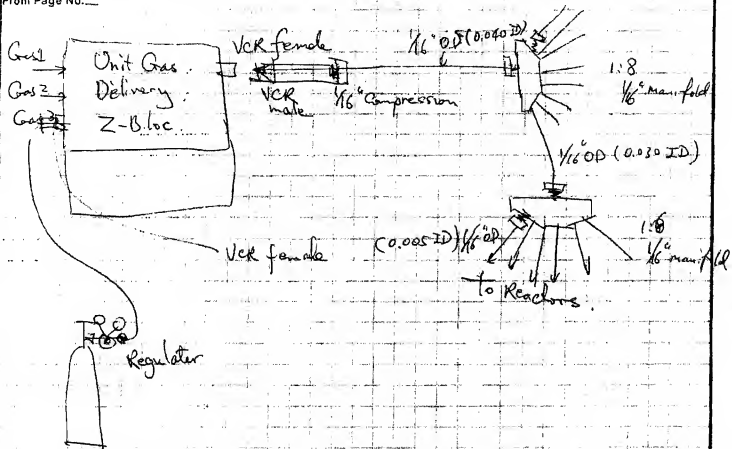 From Page No.
Gas1
Gas2
Gas3
Unit Gas
Delivery
Z-Bloc
VCR female
VCR male
1/16" Compression
1/16" OD (0.040 ID)
1:8
1/16" manifold
1/16" OD (0.030 ID)
(0.005 ID) 1/16" OD
1/16" manifold
to Reactors.
VCR female
Regulator